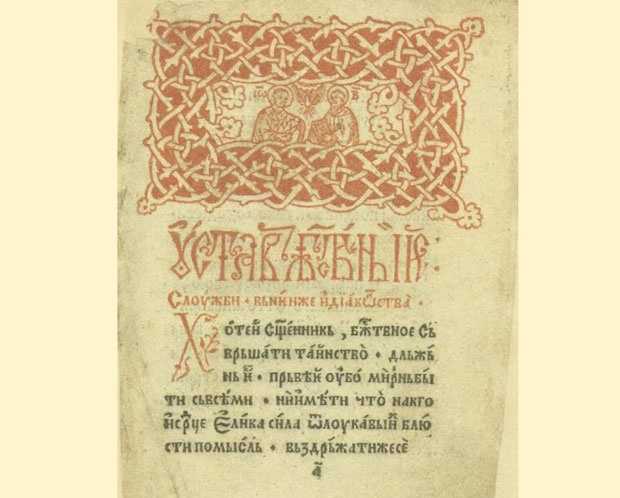 ІѠ В
Уставъ бж҃твьныѥ :
Слоужби · вьнинже идїакѡства ·
Хотей сщ҃енникь , бж҃твное сь
врьшати таинство · дльжь
нь й · прьвѣй оубо мирньбы
ти сьвсѣми · ниимѣти что накго
йср҃це Єлика сила ѿлоукавый блю
сти помысль · вьздрьжатижесе
а҃